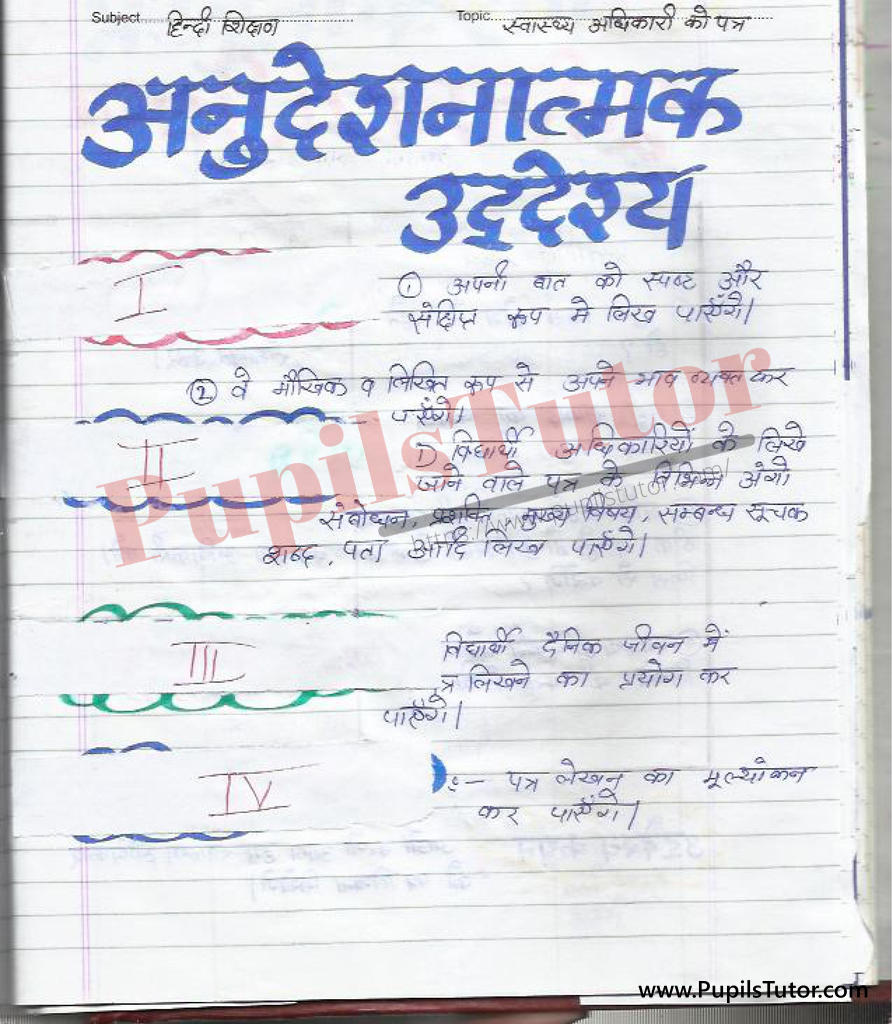 Subject हिन्दी शिक्षण Topic स्वास्थ्य अधिकारी को पत्र
अनुदेशनात्मक
उद्देश्य
I
① अपनी बात को स्पष्ट और
संक्षिप्त रूप मे लिख पाएँगे।
② वे मौखिक व लिखित रूप से अपने भाव व्यक्त कर
पाएँगे।
II
① विद्यार्थी अधिकारियों के लिखे
जाने वाले पत्र के विभिन्न अंगो
संबोधन, प्रशस्ति, मुख्य विषय, सम्बन्ध सूचक
शब्द, पता आदि लिख पाएँगे।
III
विद्यार्थी दैनिक जीवन में
त्र लिखने का प्रयोग कर
पाएँगे।
IV
:- पत्र लेखन का मूल्यांकन
कर पाएँगे।
PupilsTutor
www.PupilsTutor.com